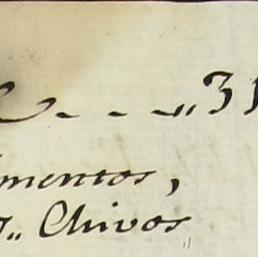 31
mentos,
Chivos